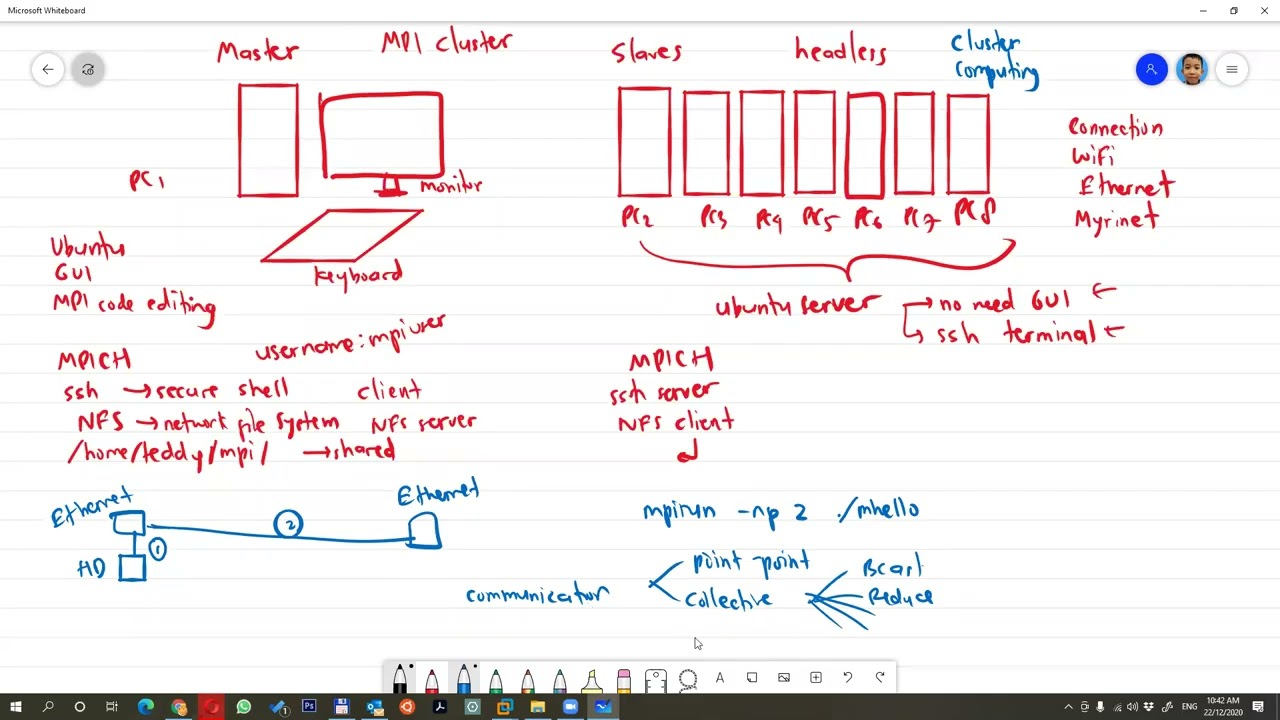 Microsoft Whiteboard
Master
MPI cluster
Slaves
headless
Cluster
Computing
PC1
monitor
keyboard
PC2
PC3
PC4
PC5
PC6
PC7
PC8
Connection
WiFi
Ethernet
Myrinet
Ubuntu
GUI
MPI code editing
ubuntu server
no need GUI
ssh terminal
username: mpiuser
MPICH
ssh → secure shell client
NFS → network file system NFS server
/home/teddy/mpi/ → shared
MPICH
ssh server
NFS client
Ethernet
Ethernet
2
1
HD
mpirun -np 2 ./mhello
communication
point-point
collective
Bcast
Reduce
ENG
10:42 AM
22/12/2020